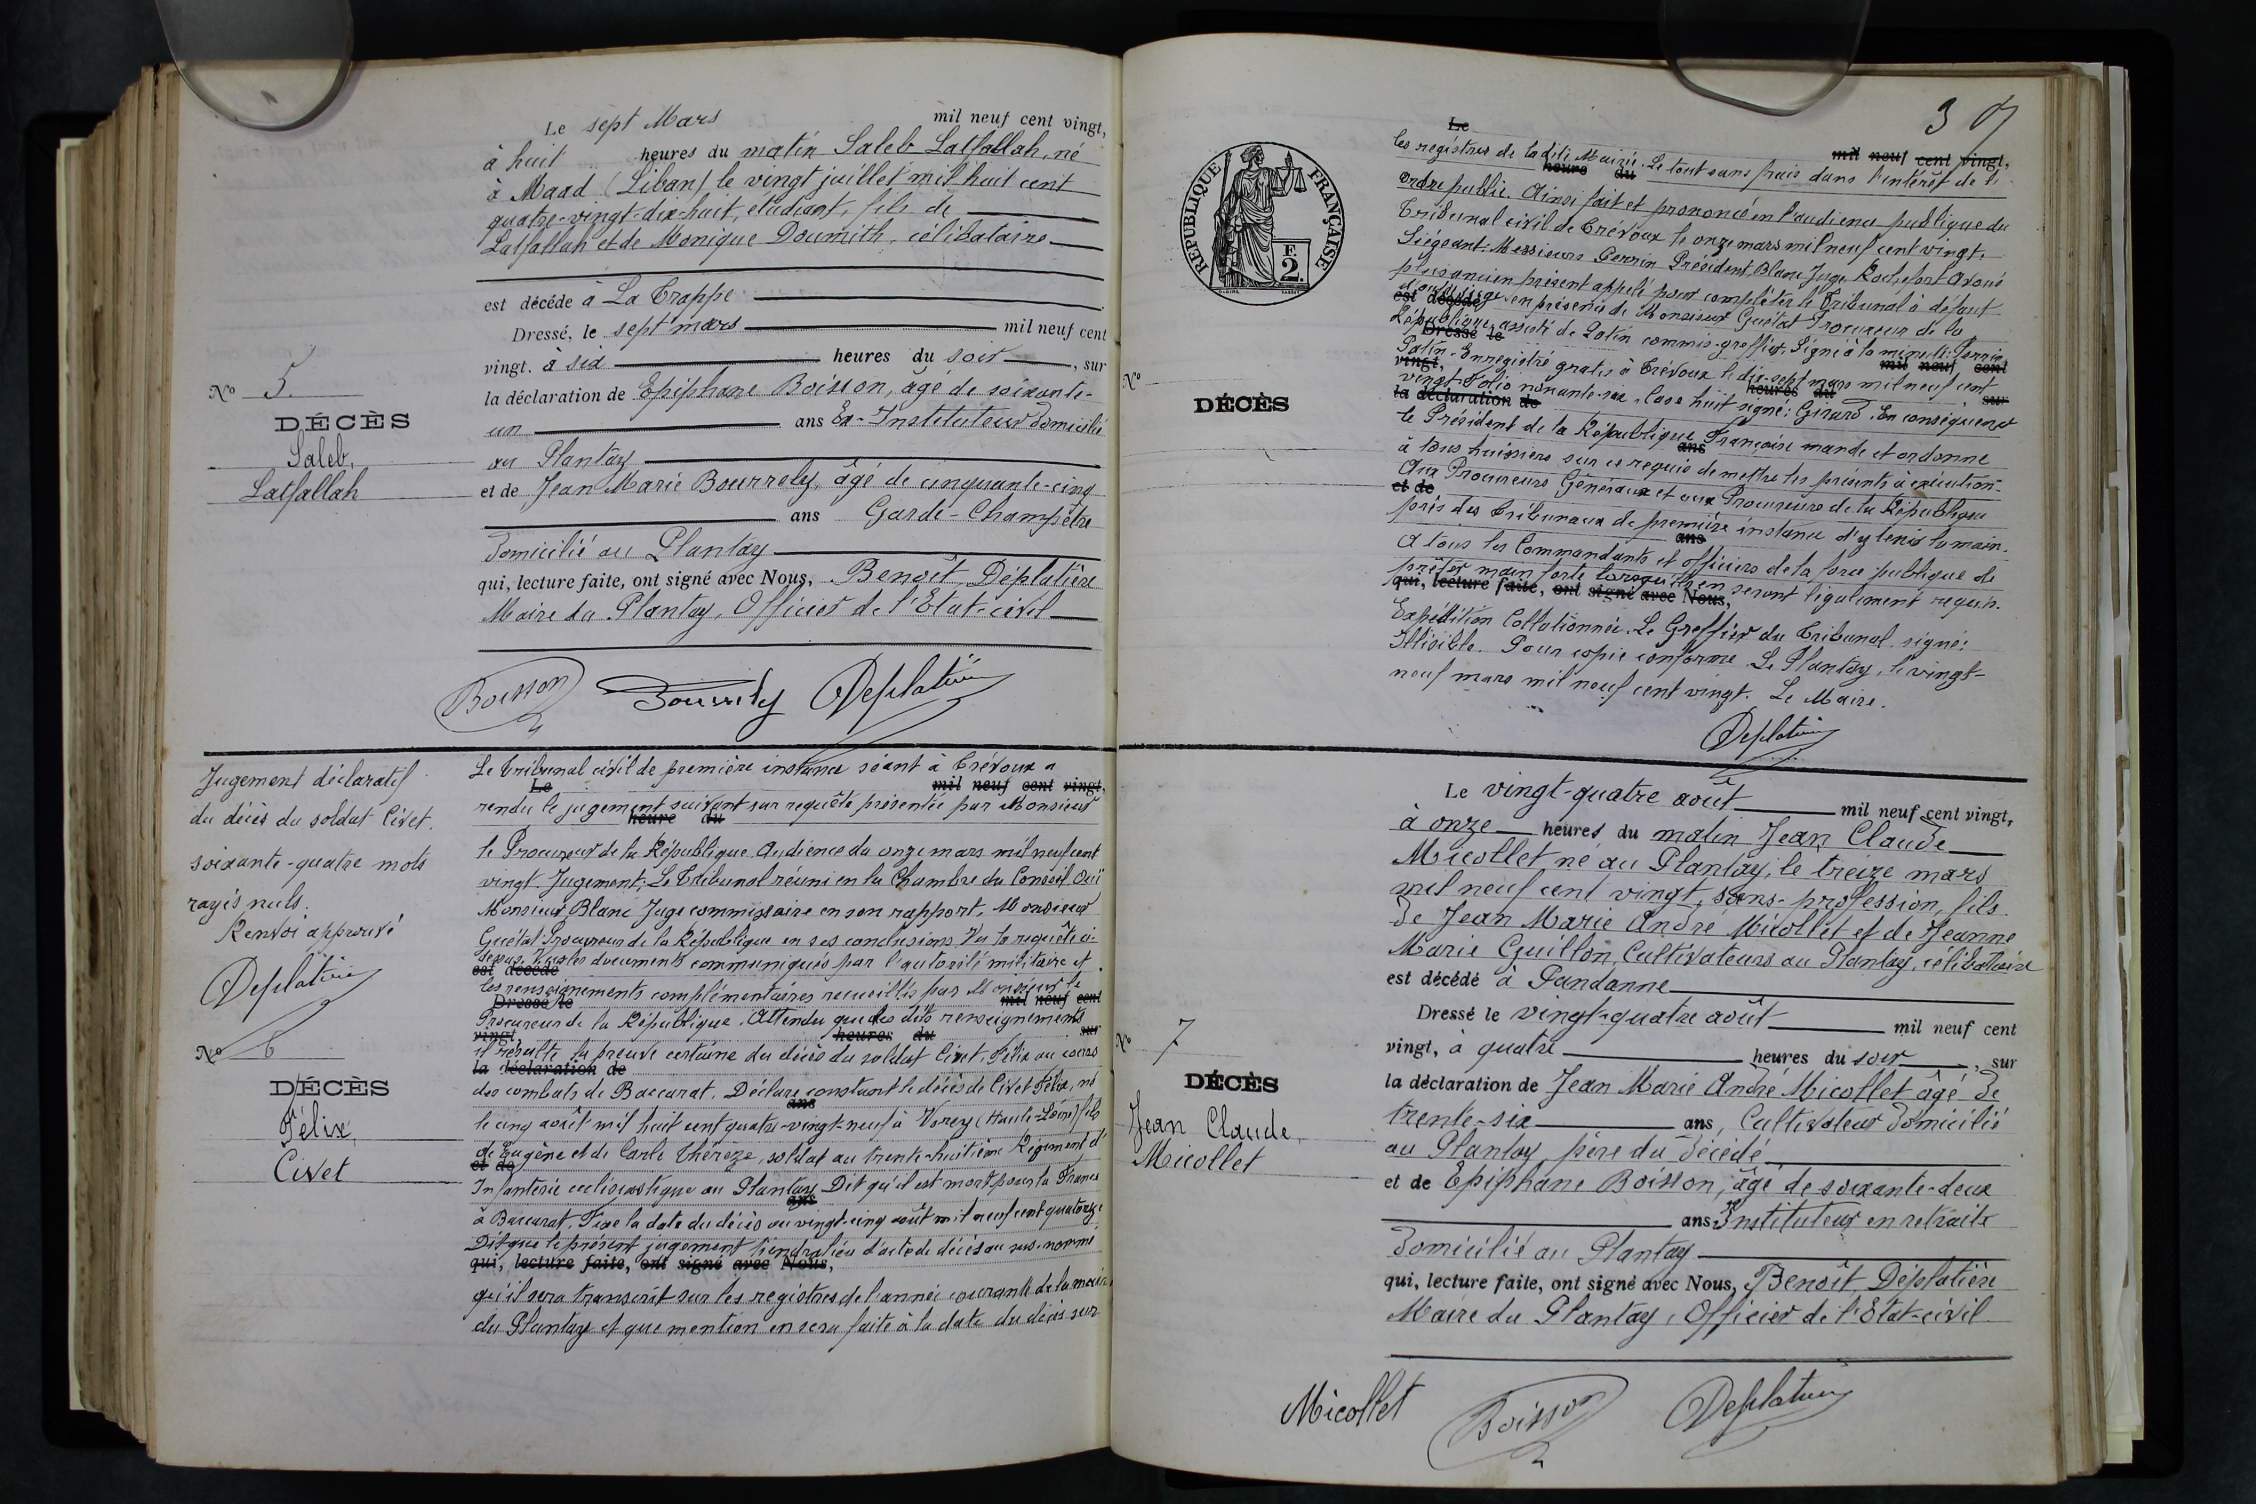 Le sept Mars mil neuf cent vingt,
à huit heures du matin Saleb Latfallah, né
à Maad (Liban) le vingt juillet mil huit cent
quatre-vingt-dix-huit, étudiant, fils de
Latfallah et de Monique Doumith, célibataire
est décédé à La Trappe
Dressé, le sept mars mil neuf cent
vingt, à six heures du soir, sur
la déclaration de Epiphane Boisson, âgé de soixante-
un ans Ex-Instituteur domicilié
au Plantay
et de Jean Marie Bourrely, âgé de cinquante-cinq
ans Garde-Champêtre
domicilié au Plantay
qui, lecture faite, ont signé avec Nous, Benoît Déplatière
Maire du Plantay, Officier de l'Etat-civil
Boisson Bourrely Deplatière
No 5.
DÉCÈS
Saleb,
Latfallah
Jugement déclaratif
du décès du soldat Civet.
soixante-quatre mots
rayés nuls.
Renvoi approuvé
Deplatière
No 6
DÉCÈS
Félix,
Civet
Le Tribunal civil de première instance séant à Trévoux a
Le mil neuf cent vingt,
rendu le jugement suivant sur requête présentée par Monsieur
heure du
le Procureur de la République. Audience du onze mars mil neuf cent
vingt. Jugement; Le Tribunal réuni en la Chambre du Conseil Ouï
Monsieur Blanc Juge commissaire en son rapport, Monsieur
Guétat Procureur de la République en ses conclusions Vu la requête ci-
dessus. Vu les documents communiqués par l'autorité militaire et
est décédé
les renseignements complémentaires recueillis par Monsieur le
Dressé le mil neuf cent
Procureur de la République. Attendu que des dits renseignements
vingt, heures du sur
il résulte la preuve certaine du décès du soldat Civet, Félix au cours
la déclaration de
des combats de Baccarat. Déclare constant le décès de Civet Félix, né
ans
le cinq août mil huit cent quatre-vingt-neuf à Vorey (Haute-Loire) fils
de Eugène et de Carle Thérèze, soldat au trente-huitième Régiment d'
et de
Infanterie ecclésiastique au Plantay Dit qu'il est mort pour la France
ans
à Baccarat. Fixe la date du décès au vingt-cinq août mil neuf cent quatorze
Dit que le présent jugement tiendra lieu d'acte de décès au sus-nommé
qui, lecture faite, ont signé avec Nous,
qu'il sera transcrit sur les registres de l'année courante de la mairie
du Plantay et que mention en sera faite à la date du décès sur
3
RÉPUBLIQUE FRANÇAISE
F.
2.
No
DÉCÈS
Le mil neuf cent vingt,
les régistres de la dite Mairie. Le tout sans frais dans l'intérêt de l'
heure du
ordre public. Ainsi fait et prononcé en l'audience publique du
Tribunal civil de Trévoux le onze mars mil neuf cent vingt.
Siégeant: Messieurs Perrin Président, Blanc Juge Rochefort Avoué
plus ancien présent appelé pour compléter le Tribunal à défaut
d'autre juge en présence de Monsieur Guétat Procureur de la
est décédé
République, assisté de Patin commis-greffier. Signé à la minute: Perrin
Dressé le
Patin. Enregistré gratis à Trévoux le dix-sept mars mil neuf cent
vingt, mil neuf cent
vingt. Folio nonante-six, case huit signé: Girard. En conséquence
heures du sur
la déclaration de
le Président de la République Française mande et ordonne
ans
à tous huissiers sur ce requis de mettre les présents à exécution-
Aux Procureurs Généraux et aux Procureurs de la République
et de
près des Tribunaux de première instance d'y tenir la main.
ans
A tous les Commandants et officiers de la force publique de
prêter main forte lorsqu'ils en seront légalement requis.
qui, lecture faite, ont signé avec Nous,
Expédition Collationnée. Le Greffier du Tribunal signé:
Illisible. Pour copie conforme Le Plantay, le vingt-
neuf mars mil neuf cent vingt. Le Maire.
Deplatière
No 7
DÉCÈS
Jean Claude,
Micollet
Le vingt-quatre août mil neuf cent vingt,
à onze heures du matin Jean Claude
Micollet né au Plantay, le treize mars
mil neuf cent vingt, sans-profession, fils
de Jean Marie André Micollet et de Jeanne
Marie Guillon, Cultivateurs au Plantay, célibataire
est décédé à Pandanne
Dressé le vingt-quatre août mil neuf cent
vingt, à quatre heures du soir, sur
la déclaration de Jean Marie André Micollet âgé de
trente-six ans, Cultivateur domicilié
au Plantay, père du décédé
et de Epiphane Boisson, âgé de soixante-deux
ans Instituteur en retraite
domicilié au Plantay
qui, lecture faite, ont signé avec Nous, Benoît Déplatière
Maire du Plantay, Officier de l'Etat-civil
Micollet Boisson Deplatière